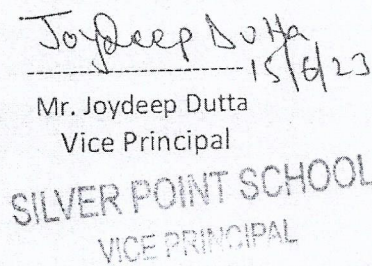 Joydeep Dutta
15/6/23
Mr. Joydeep Dutta
Vice Principal
SILVER POINT SCHOOL
VICE PRINCIPAL